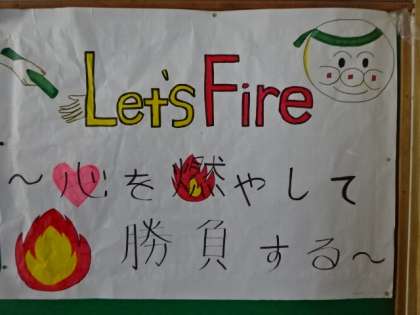 Let's Fire
～心を燃やして
勝負する～